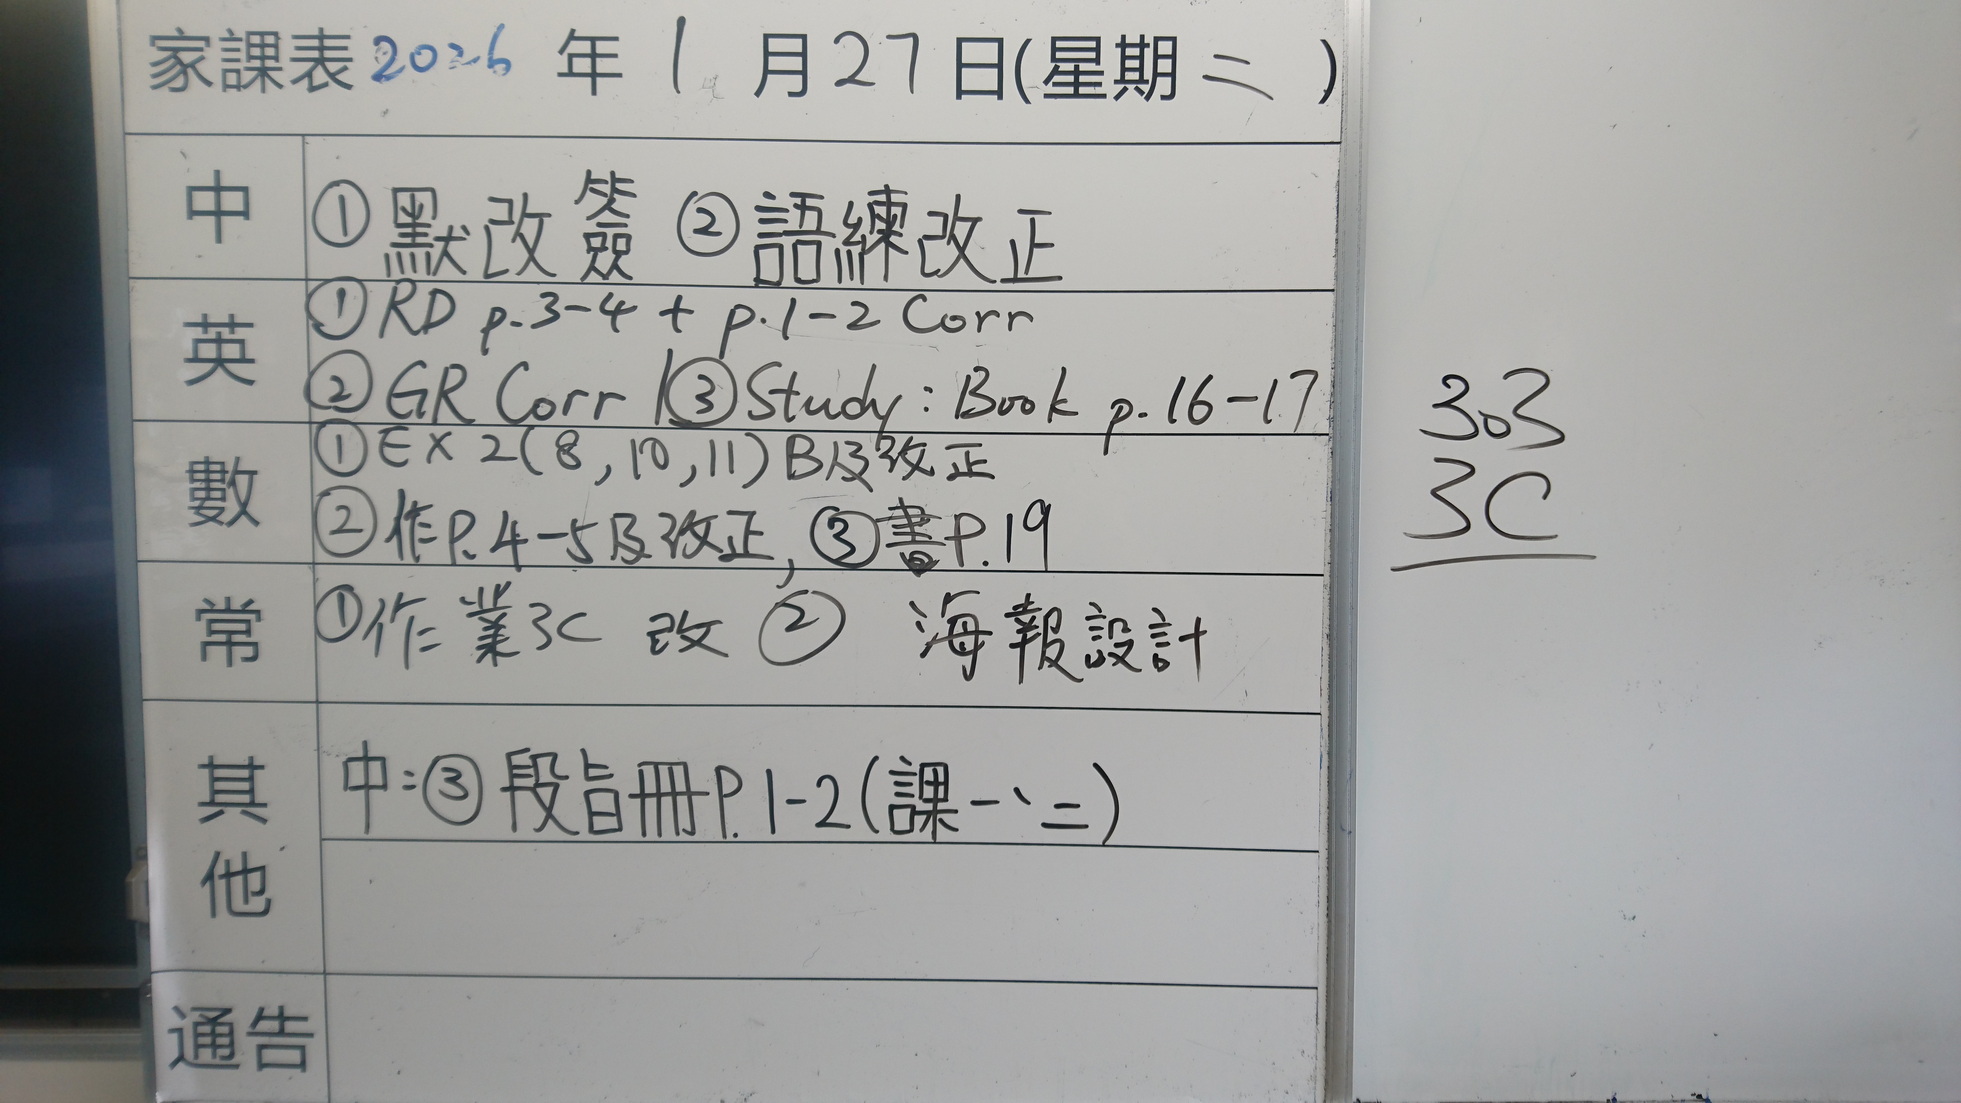 家課表2026年1月27日(星期二)
中 ①默改簽 ②語練改正
英 ①RD p.3-4 + p.1-2 Corr
②GR Corr ③Study: Book p.16-17
數 ①EX 2(8,10,11)B及改正
②作P.4-5及改正, ③書P.19
常 ①作業3C 改 ② 海報設計
其他 中:③段旨冊P.1-2(課一、二)
通告
303
3C